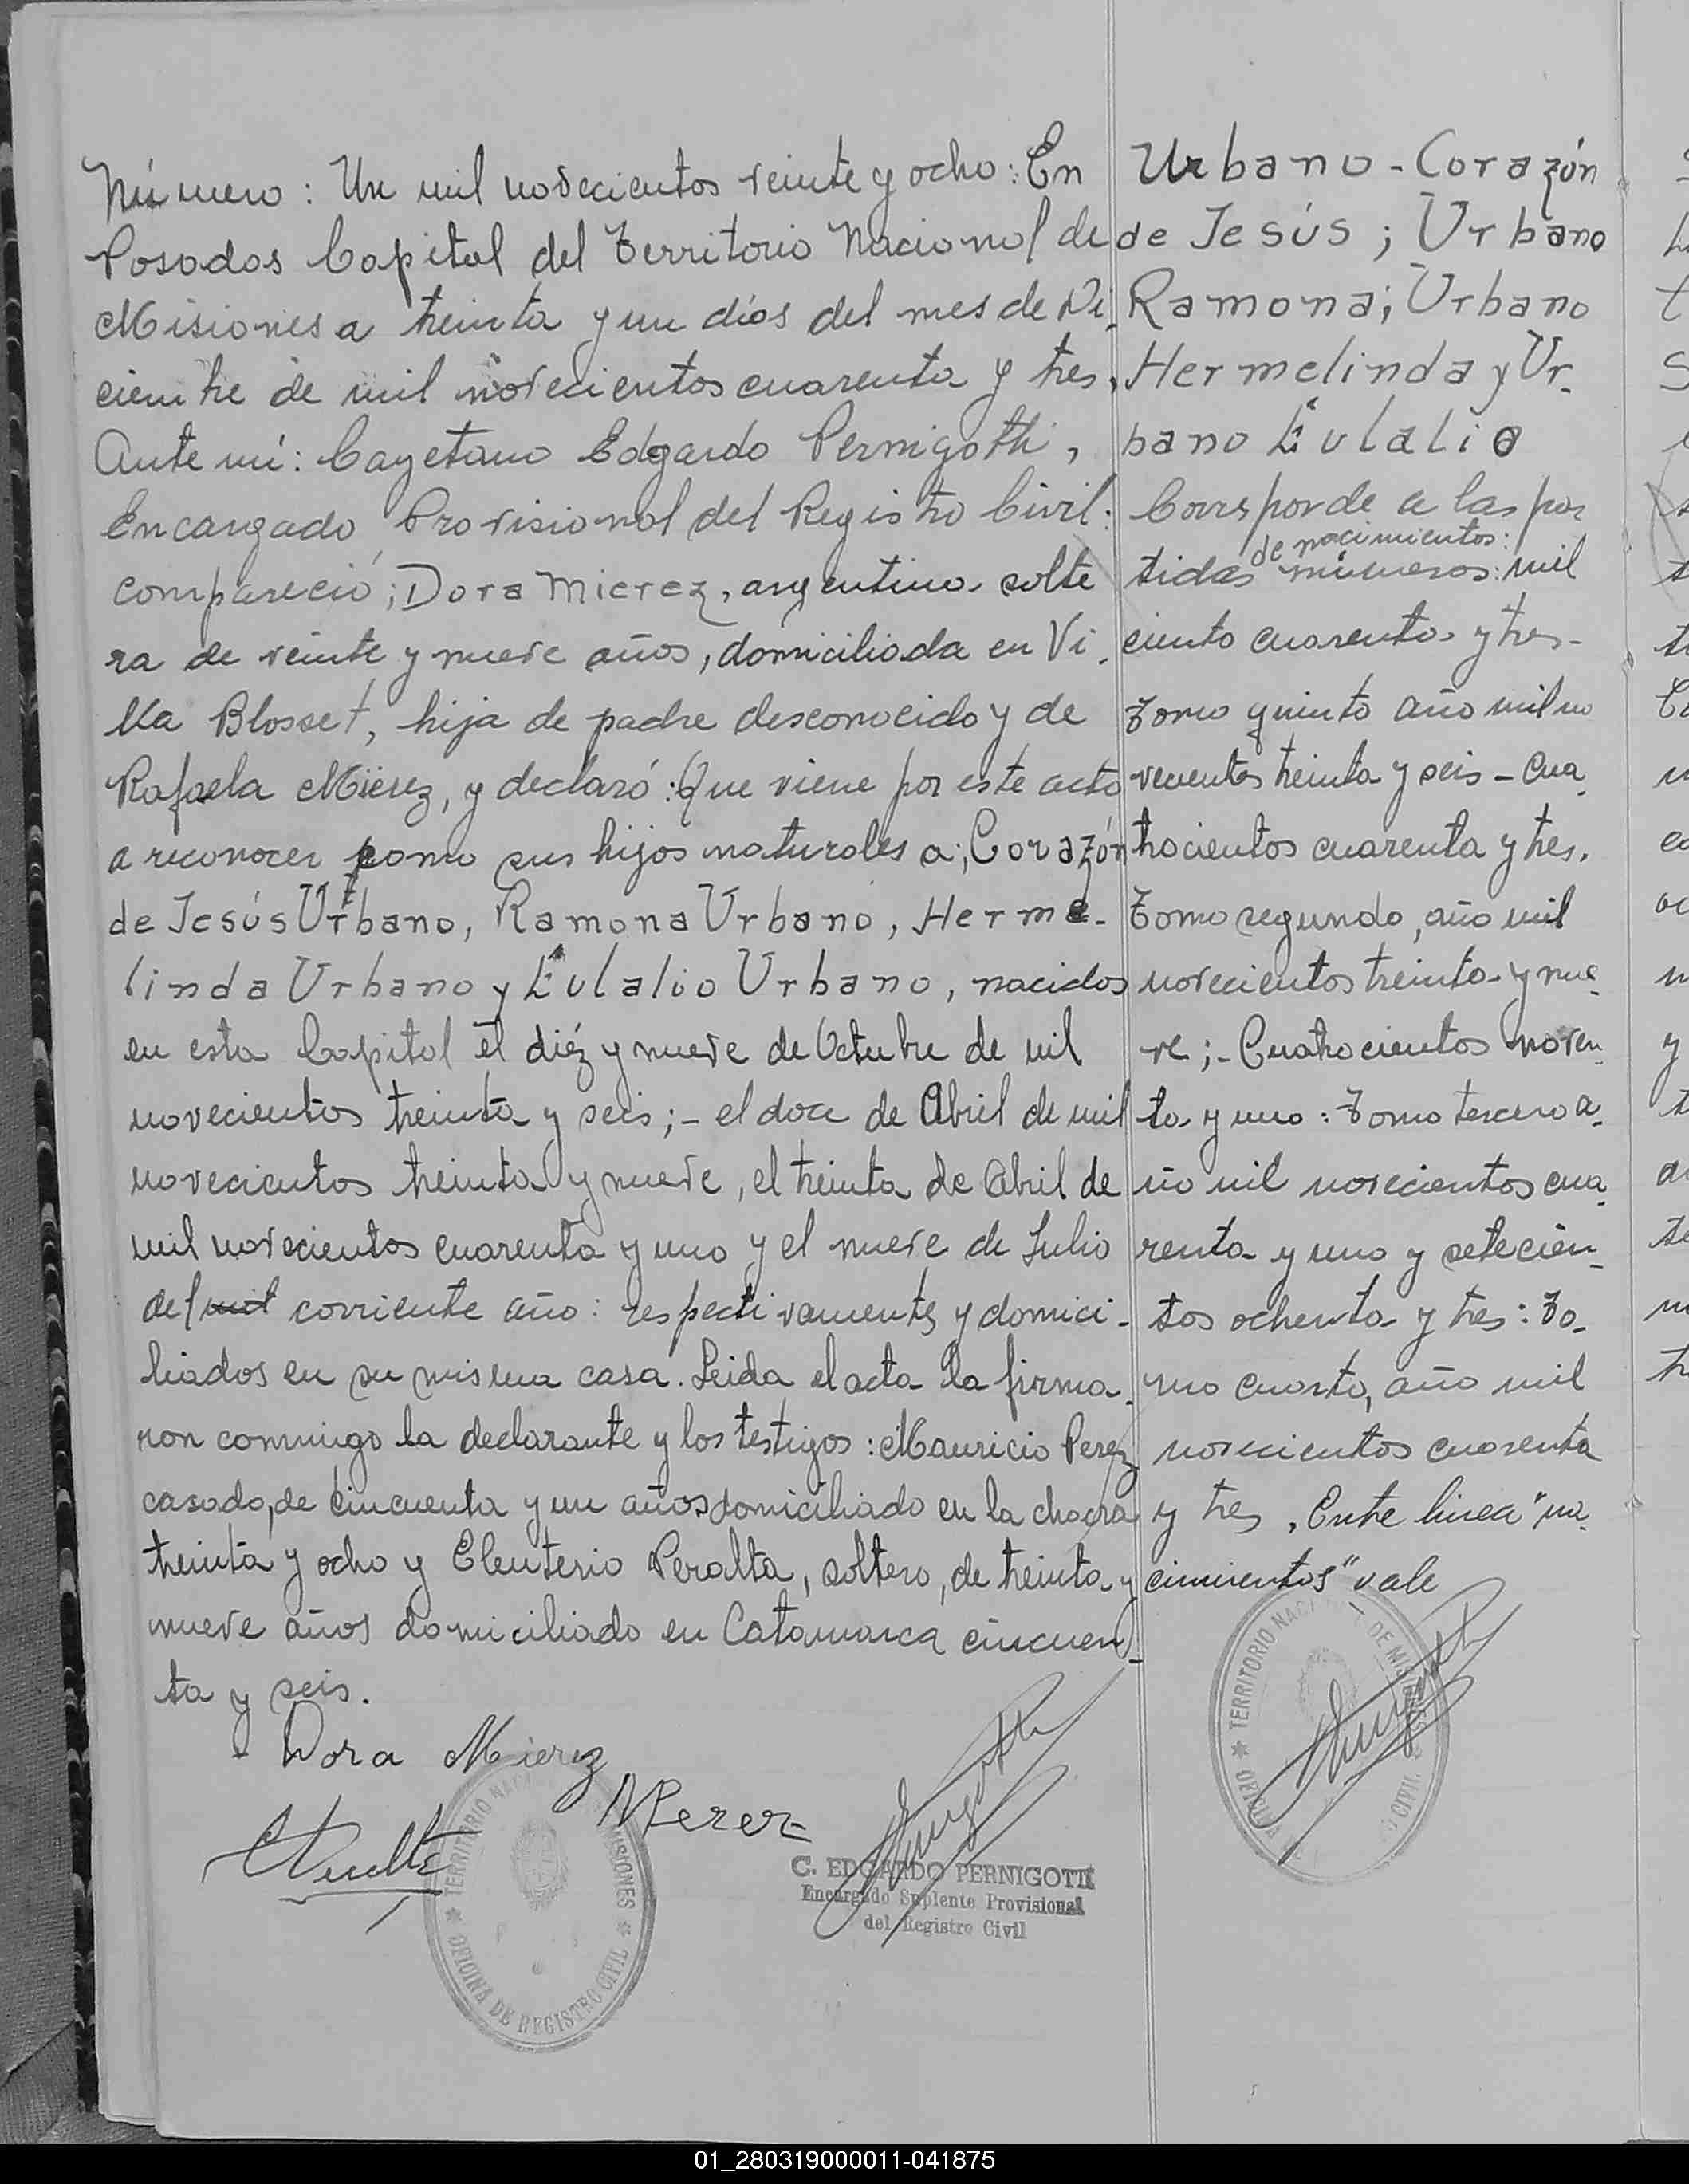 Número: Un mil novecientos veinte y ocho: En
Posadas Capital del Territorio Nacional de
Misiones a treinta y un días del mes de Di-
ciembre de mil novecientos cuarenta y tres,
Ante mí: Cayetano Edgardo Pernigotti,
Encargado Provisional del Registro Civil:
compareció; Dora Mierez, argentina, solte
ra de veinte y nueve años, domiciliada en Vi-
lla Blosset, hija de padre desconocido y de
Rafaela Mierez, y declaró: Que viene por este acto
a reconocer como sus hijos naturales a; Corazón
de Jesús Urbano, Ramona Urbano, Herme-
linda Urbano y Eulalio Urbano, nacidos
en esta Capital el diéz y nueve de Octubre de mil
novecientos treinta y seis;- el doce de Abril de mil
novecientos treinta y nueve, el treinta de Abril de
mil novecientos cuarenta y uno y el nueve de Julio
del mil corriente año: respectivamente, y domici-
liados en su misma casa. Leida el acta la firma-
ron conmigo la declarante y los testigos: Mauricio Perez
casado, de cincuenta y un años domiciliado en la chacra
treinta y ocho y Eleuterio Peralta, soltero, de treinta y
nueve años domiciliado en Catamarca cincuen-
ta y seis.
Dora Mierez
MPerez
C. EDGARDO PERNIGOTTI
Encargado Suplente Provisional
del Registro Civil
TERRITORIO NACI MISIONES
OFICINA DE REGISTRO CIVIL
Urbano - Corazón
de Jesús; Urbano
Ramona; Urbano
Hermelinda y Ur-
bano Eulalio
Corresponde a las par
de nacimientos:
tidas números: mil
ciento cuarenta y tres-
Tomo quinto año mil no
vecientos treinta y seis - Cua-
trocientos cuarenta y tres,
Tomo segundo, año mil
novecientos treinta y nue-
ve;- Cuatrocientos noven-
ta y uno: Tomo tercero a-
ño mil novecientos cua-
renta y uno y setecien-
tos ochenta y tres: To-
mo cuarto, año mil
novecientos cuarenta
y tres, Entre linea "na-
cimientos" vale
TERRITORIO NACI DE MISI
CIVIL
01_280319000011-041875